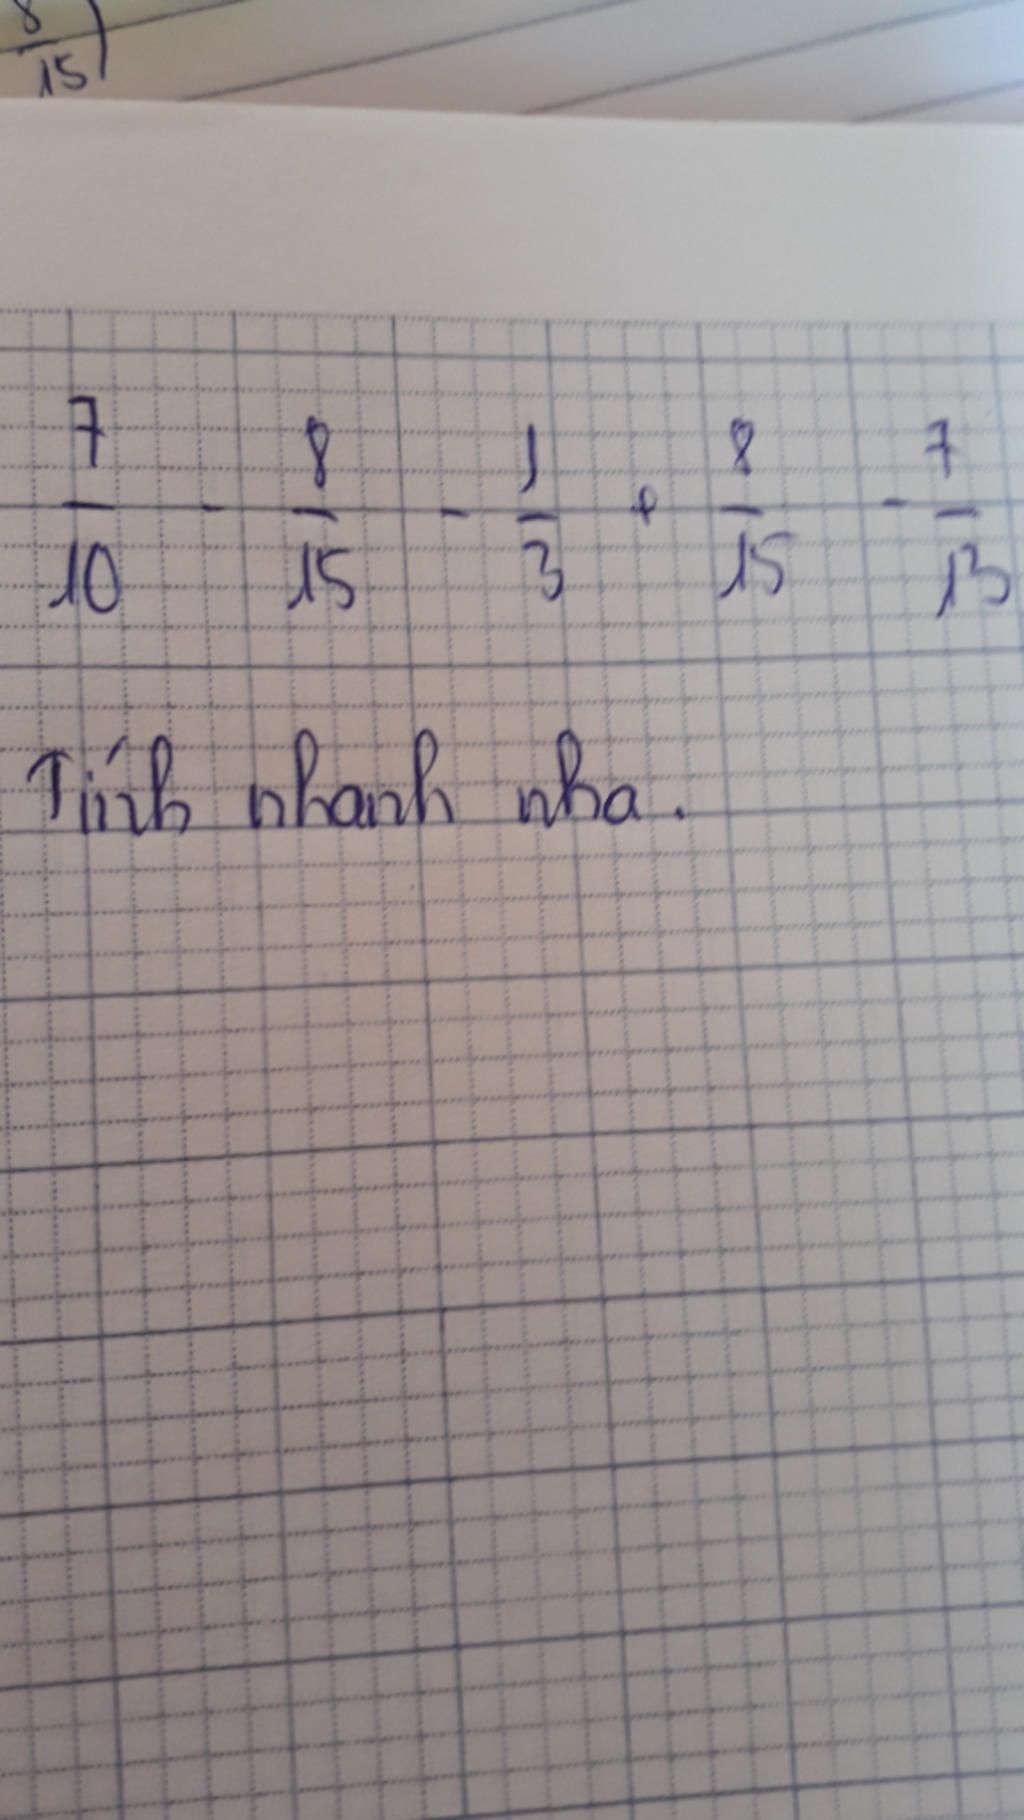 8/15)
7/10 - 8/15 - 1/3 + 8/15 - 7/13
Tính nhanh nha.